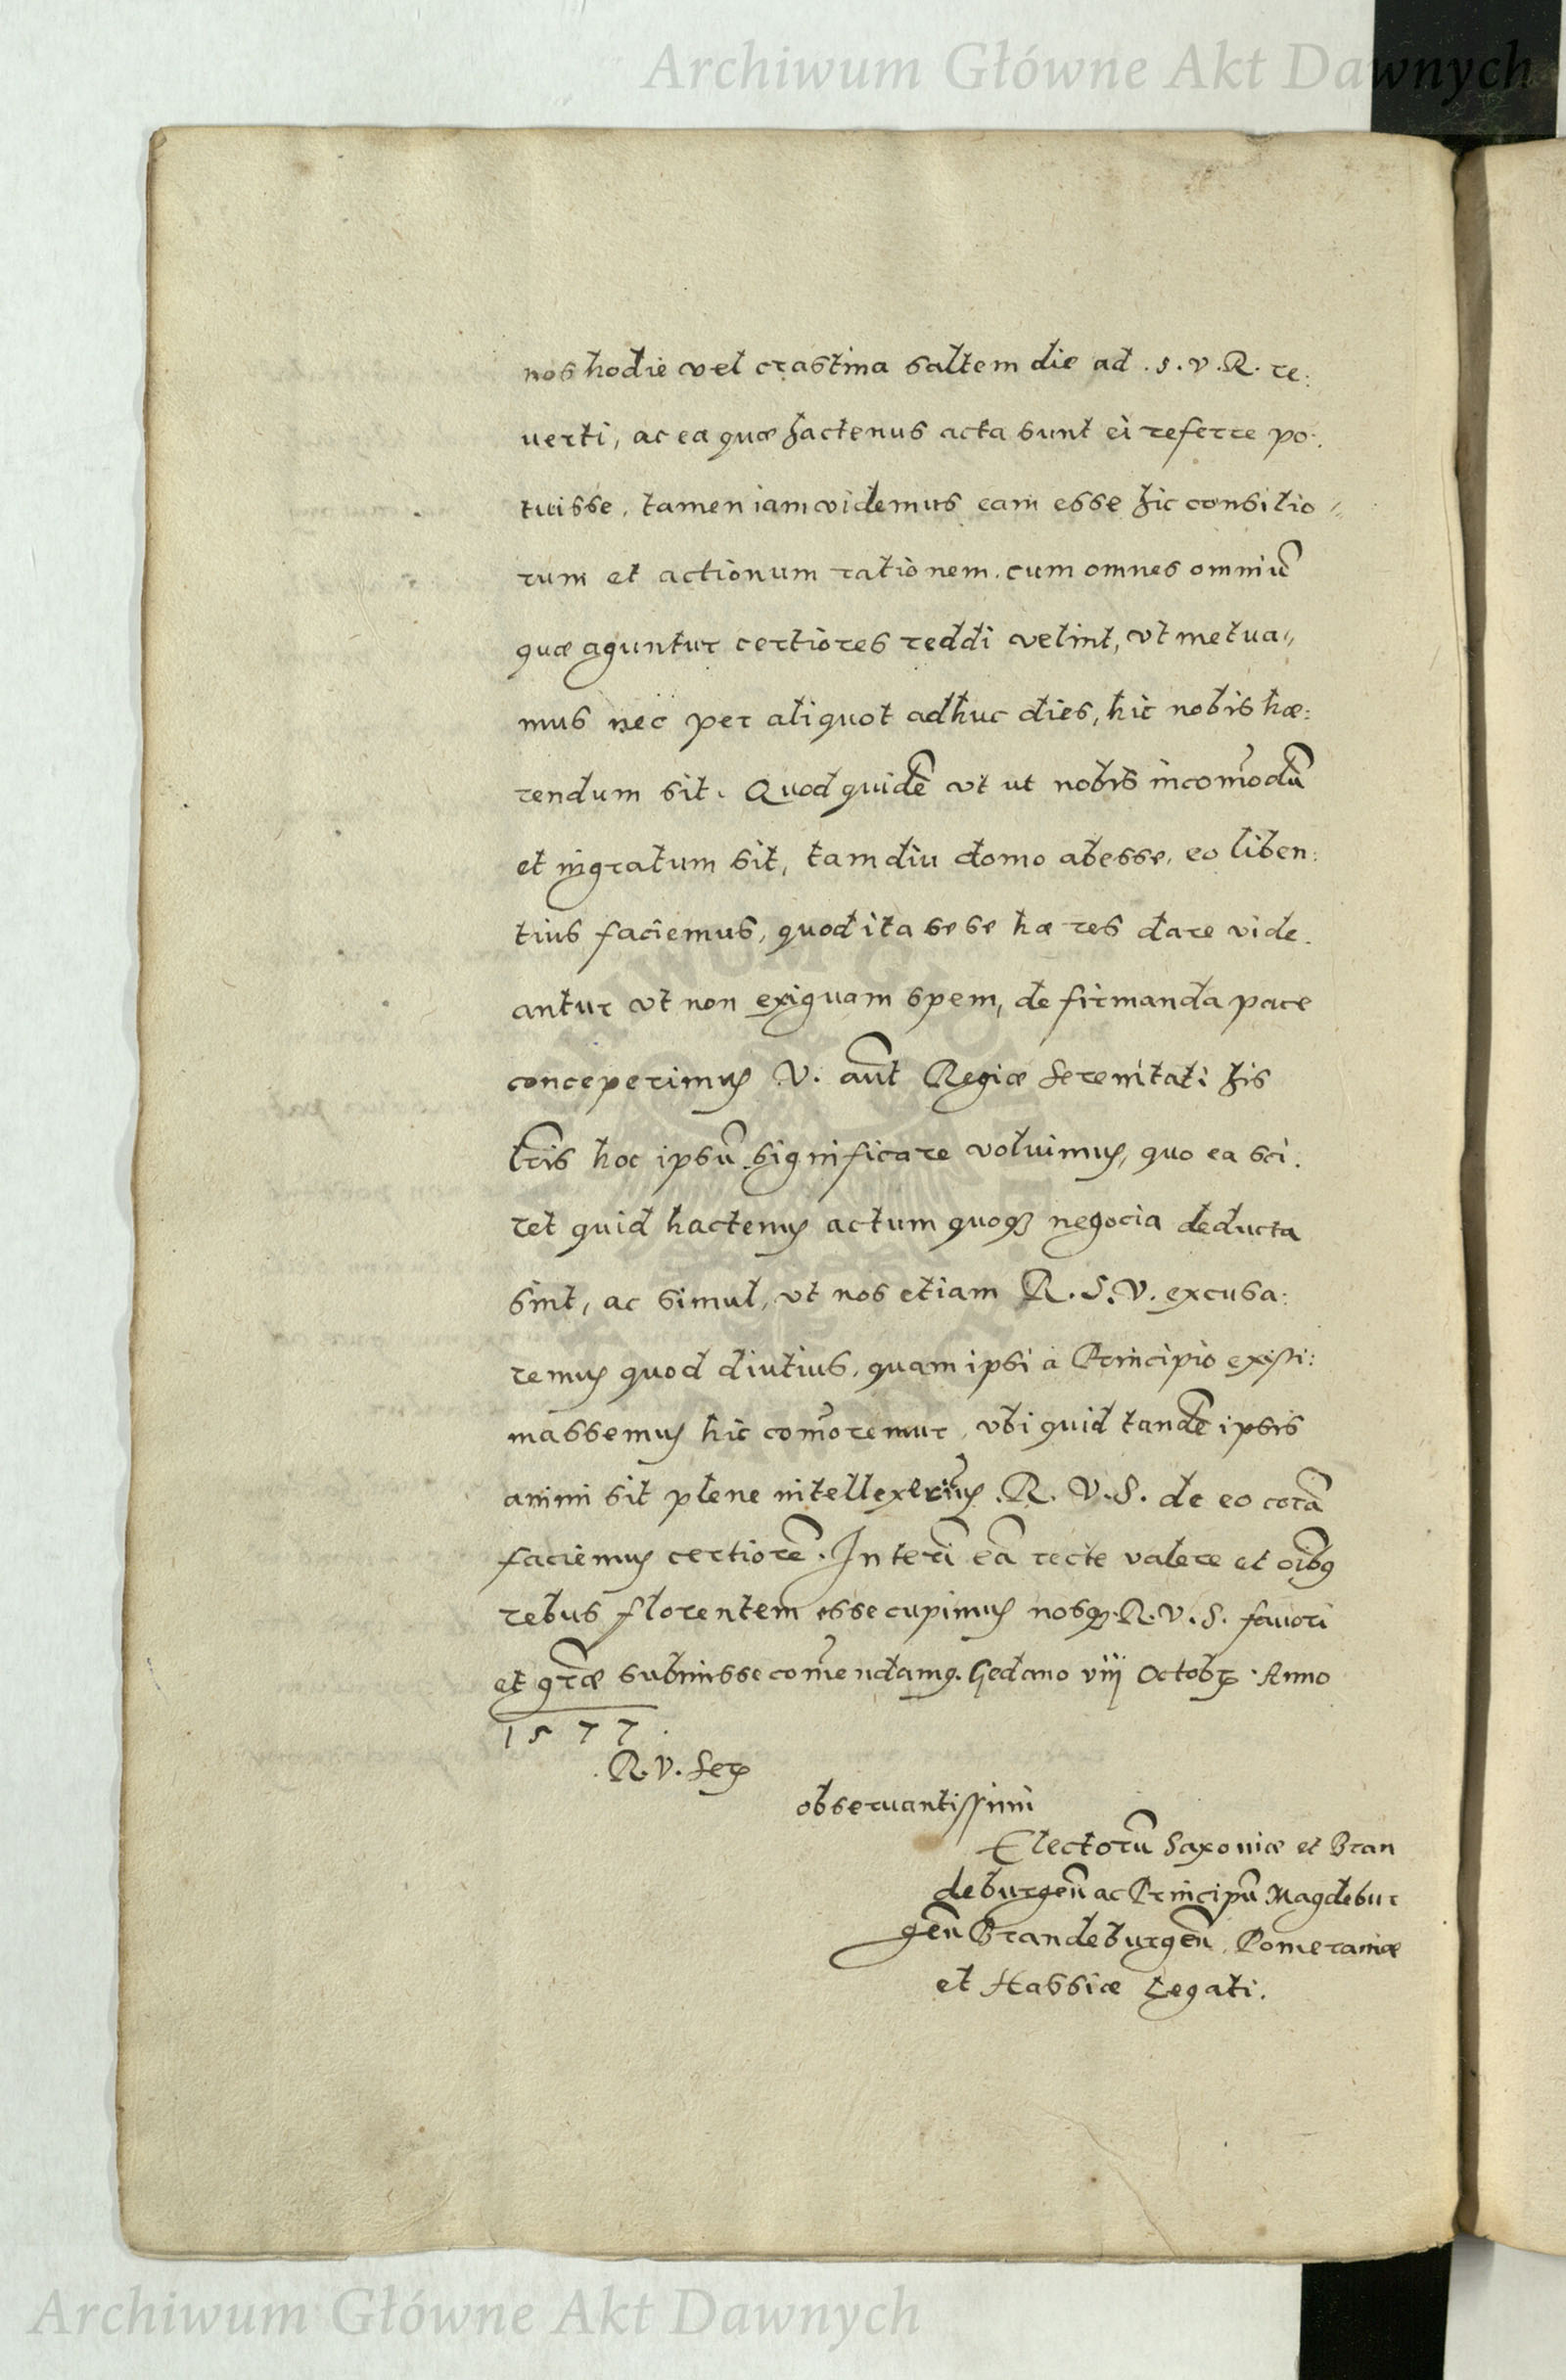 Archiwum Główne Akt Dawnych
nos hodie vel crastina saltem die ad .S.V.R. re:
uerti, ac ea quæ hactenus acta sunt ei referre po:
tuisse, tamen iam videmus eam esse hic consilio〃
rum et actionum rationem, cum omnes omniũ
quæ aguntur certiores reddi velint, vt metua〃
mus nec per aliquot adhuc dies, hic nobis hæ:
rendum sit. Quod quidẽ vt ut nobis incom̃odũ
et ingratum sit, tamdiu domo abesse, eo liben:
tius faciemus, quod ita sese hæ res dare vide.
antur vt non exiguam spem, de firmanda pace
conceperimꝰ V. aũt Regiæ Serenitati his
lr̃is hoc ipsũ significare voluimꝰ, quo ea sci.
ret quid hactenꝰ actum quoqꝫ negocia deducta
sint, ac simul, vt nos etiam R.S.V. excusa:
remꝰ quod diutius, quam ipsi a Principio existi:
massemꝰ hic com̃oremur, vbi quid tandẽ ipsis
animi sit plene intellexerim̃ꝰ .R.V.S. de eo corã
faciemꝰ certiorẽ. Interĩ eã recte valere et oĩbꝰ
rebus florentem esse cupimꝰ nosqꝫ .R.V.S. fauori
et gr̃æ submisse com̃endamꝰ. Gedano viij Octobr̃ . Anno
1577.
.R.V. Ser̃
obseruantissimi
Electorũ Saxoniæ et Bran
deburgeñ ac Principũ Magdebur
geñ Brandeburgeñ, Pomeraniæ
et Hassiæ Legati.
Archiwum Główne Akt Dawnych